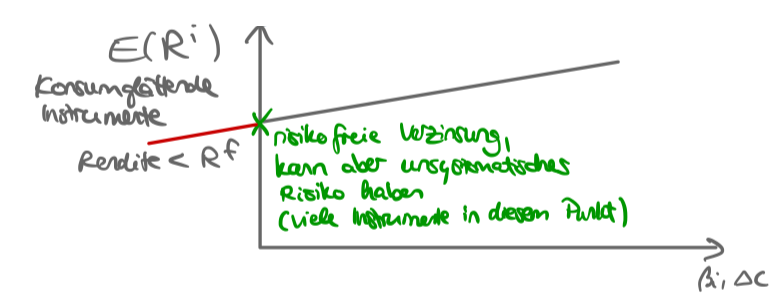 E(Rⁱ)
Konsumglättende
Instrumente
Rendite < Rᶠ
risikofreie Verzinsung,
kann aber unsystematisches
Risiko haben
(viele Instrumente in diesem Punkt)
βi, ΔC